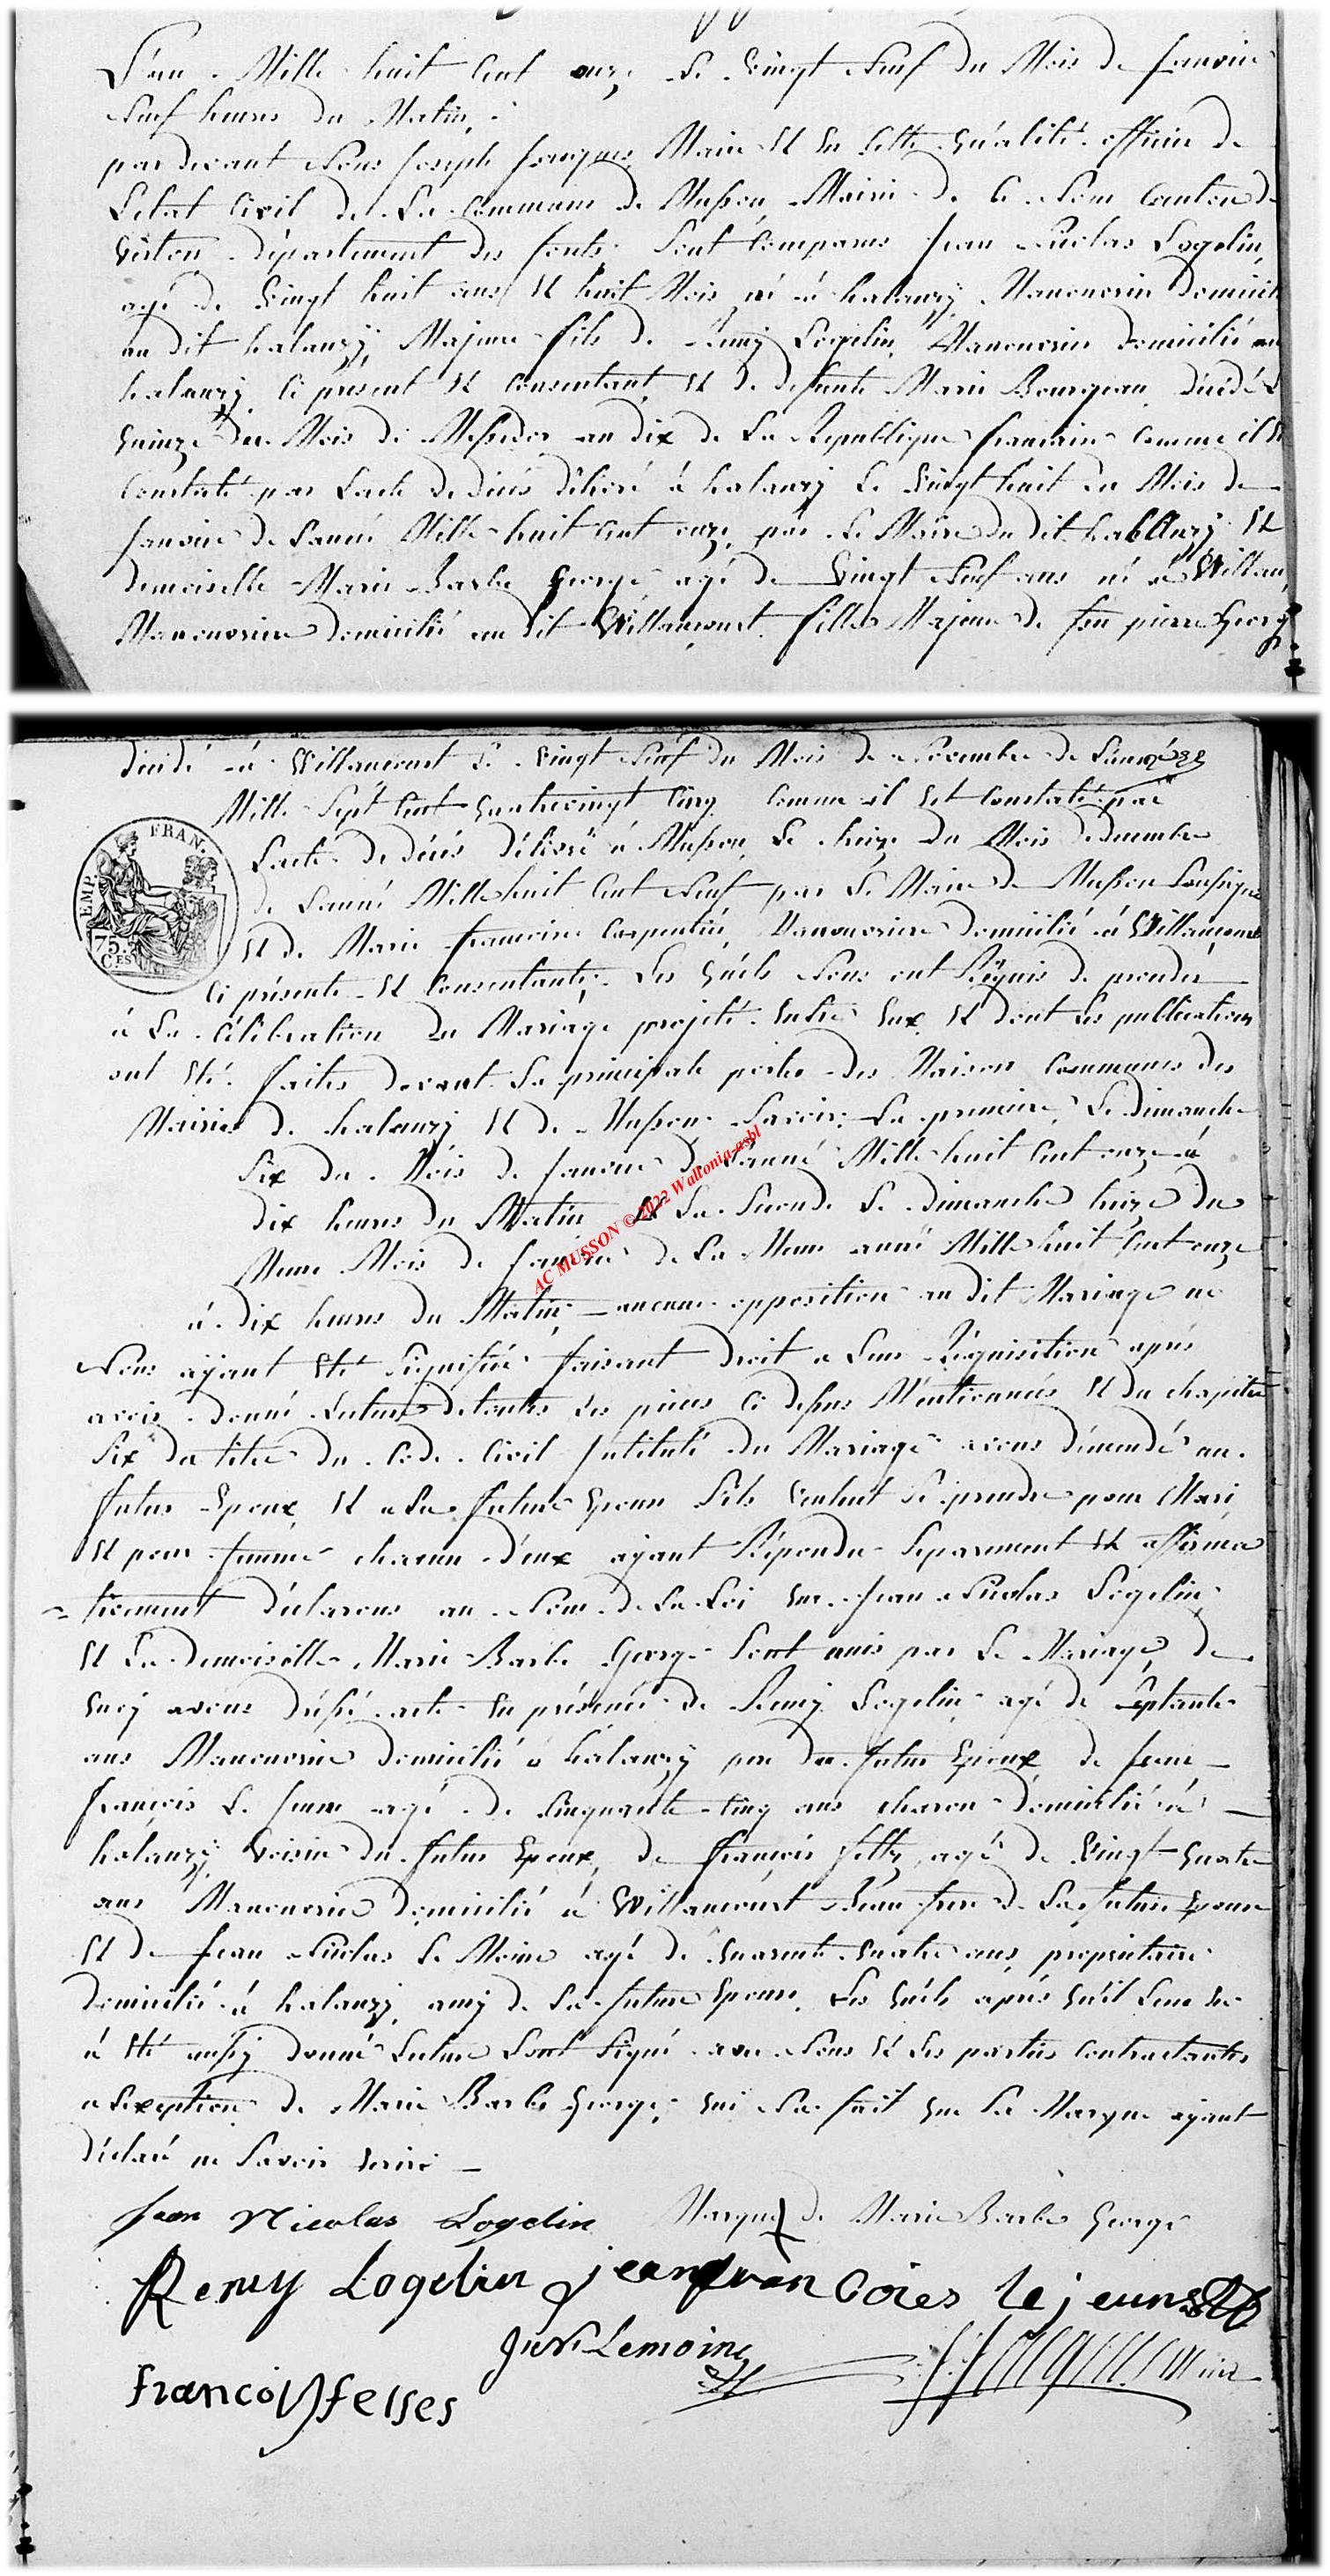 L'an Mille huit Cent onze Le vingt Neuf du Mois de Janvier
Neuf heures du Matin,
par devant Nous Joseph Jacques Maire Et En Cette Qualité officier de
L'etat Civil de La Commune de Musson Mairie de Ce Nom Canton de
Virton département des forêts Sont Comparus Jean Nicolas Logelin,
agé de Vingt huit ans Et huit Mois né à halanzy Manouvrier domicilié
au dit halanzy, Majeure fils de Remy Logelin, Manouvrier domicilié au
halanzy Ci présent Et Consentant Et de defunte Marie Bourgean décédée
Quinze du Mois de Messidor an dix de La Republique francaise Comme il Est
Constaté par L'acte de décés délivré à halanzy Le Vingt huit du Mois de
Janvier de L'anné Mille huit Cent onze, par Le Maire du dit hablanzy Et
demoiselle Marie Barbe George agé de Vingt Neuf ans né à Willan,
Manouvriere domicilié au dit Willancourt fille Majeure de feu pierre George
décédé à Willancourt Le Vingt Neuf du Mois de Novembre de L'année
Mille Sept Cent Quatrevingt Cinq Comme il Est Constaté par
L'acte de décés délivré à Musson Le treize du Mois de decembre
de L'anné Mille huit Cent Neuf par Le Maire de Musson Soussigné
Et de Marie francoise Carpentié, Manouvriere domicilié à Willancourt
EMP. FRAN.
75.
C.ES
Ci présente Et Consentante; Les Quéls Nous ont Réquis de procéder
à La Célébration du Mariage projeté Entre Eux Et dont Les publications
ont Eté faites devant La principale porte des Maison Communes des
Mairies de halanzy Et de Musson Savoir; La premiere Le dimanche
Six du Mois de Janvier de L'anné Mille huit Cent onze à
dix heures du Matin Et La Seconde Le dimanche treize du
Meme Mois de Janvier de La Meme anné Mille huit Cent onze
à dix heures du Matin; aucune opposition au dit Mariage ne
Nous ayant Eté Signifiée faisant droit a Leur Réquisition aprés
avoir donné Lecture de toutes Les pieces Ci dessus Mentionnées Et du chapitre
Six du titre du Code Civil Intitulé du Mariage avons démendé au
futur Epoux Et a La future Epouse S'ils Veulent Se prendre pour Mari
Et pour femme chacun d'eux ayant Répondu Separement Et affirma
tivement déclarons au Nom de La Loi Que Jean Nicolas Logelin
Et La demoiselle Marie Barbe George Sont unis par Le Mariage de
Quoy avons dréssé acte En présence de Remy Logelin agé de Séptante
ans Manouvrier domicilié à halanzy pere du futur Epoux de Jean
françois Le Jeune agé de Cinquante Cinq ans charon domicilié à
halanzy Voisin du futur Epoux, de françois feltz, agé de Vingt Quatre
ans Manouvrier domicilié à Willancourt Beau frere de La future Epouse
Et de Jean Nicolas Le Moine agé de Quarente Quatre ans, proprietaire
domicilié à halanzy, amy de La future Epouse, Les Quéls aprés Qu'il Leur En
à Eté aussy donné Lecture Sont Signé avec Nous Et Les parties Contractantes
a L'exeption de Marie Barbe George, Qui N'a fait Que Sa Marque ayant
déclaré ne Savoir Ecrire
Jean Nicolas Logelin Marque de Marie Barbe George
Remy Logelin jean francoies le jeune
JeanN. Lemoine
francois felses
AC MUSSON © 2022 Wallonia-asbl